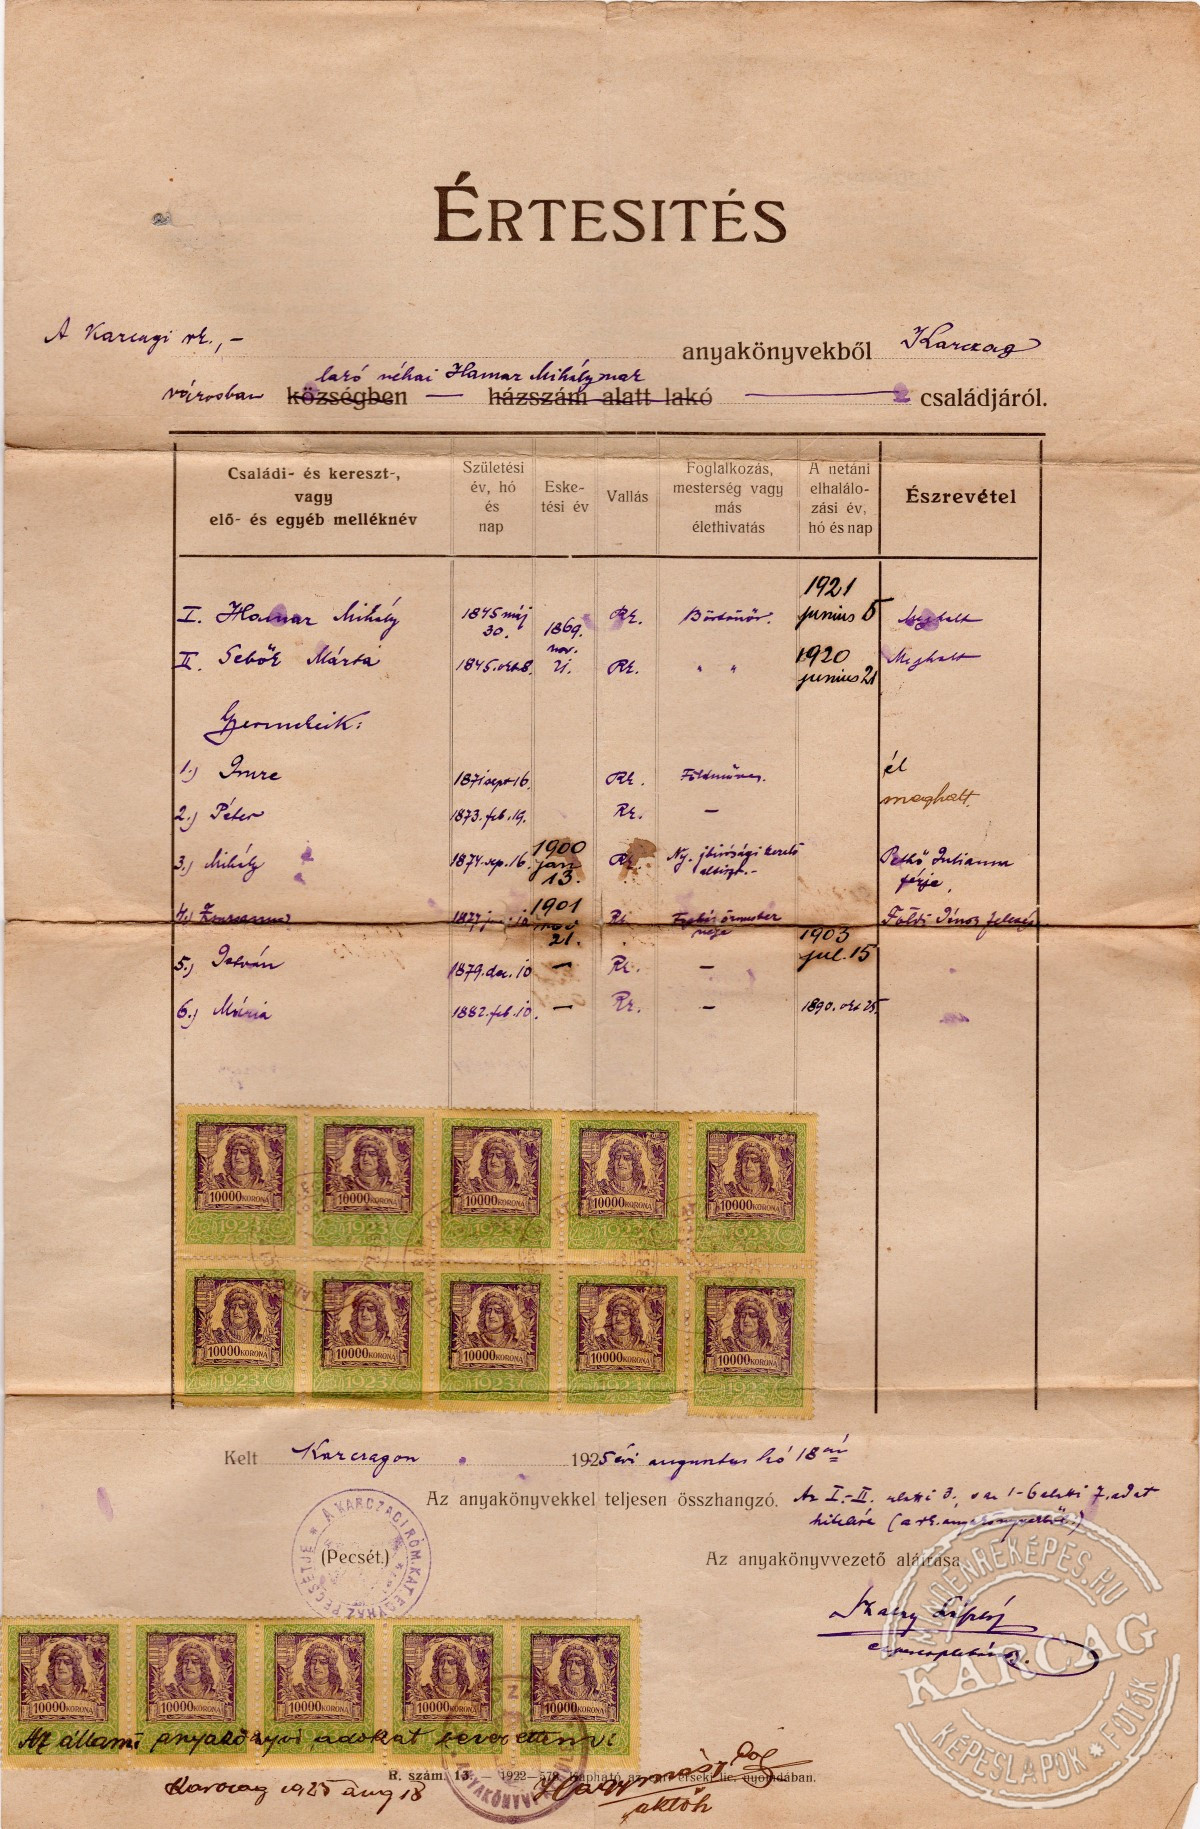 ÉRTESITÉS
A Karcagi rk.,- anyakönyvekből Karczag
városban községben — lakó néhai Hamar Mihálynak házszám alatt lakó — családjáról.
Családi- és kereszt-, vagy elő- és egyéb melléknév
Születési év, hó és nap
Eske-tési év
Vallás
Foglalkozás, mesterség vagy más élethivatás
A netáni elhalálo-zási év, hó és nap
Észrevétel
I. Hamar Mihály 1845 máj 30. 1869. nov. 21. Rk. Börtönőr. 1921 junius 5 Meghalt
II. Sebők Márta 1845. okt 8. Rk. " " 1920 junius 21 Meghalt
Gyermekeik:
1.) Imre 1871 sept 16. Rk. Földműves. él
2.) Péter 1873. feb. 19. Rk. — meghalt.
3.) Mihály 1874. sep. 16. 1900 jan 13. Rk. Ny. jbirósági kezelő altiszt.- Pethő Julianna férje,
4.) 1877 1901 nov 21. Rk. Földi János feleség
5.) István 1879. dec. 10 — Rk. — 1903 jul. 15
6.) Mária 1882. feb. 10. — Rk. — 1890. okt 25.
10000 KORONA 10000 KORONA 10000 KORONA 10000 KORONA 10000 KORONA
1923 1923 1923 1923 1923
10000 KORONA 10000 KORONA 10000 KORONA 10000 KORONA 10000 KORONA
1923 1923 1923 1923 1923
Kelt Karczagon 1925 évi augusztus hó 18 án
Az anyakönyvekkel teljesen összhangzó. Az I.-II. alatti 3., s az 1-6 alatti 7. adat
hitelére (a rk. anyakönyvekből.)
(Pecsét.)
A KARCZAGI RÓM. KAT. EGYHÁZ PECSÉTJE
Az anyakönyvvezető aláirása
10000 KORONA 10000 KORONA 10000 KORONA 10000 KORONA 10000 KORONA
Az állami anyakönyvi adokat
R. szám. 13. — 1922—578. Kapható az érseki lic. nyomdában.
Karcag 1925 aug 18
MINDENREKÉPES.HU
KARCAG
KÉPESLAPOK * FOTÓK